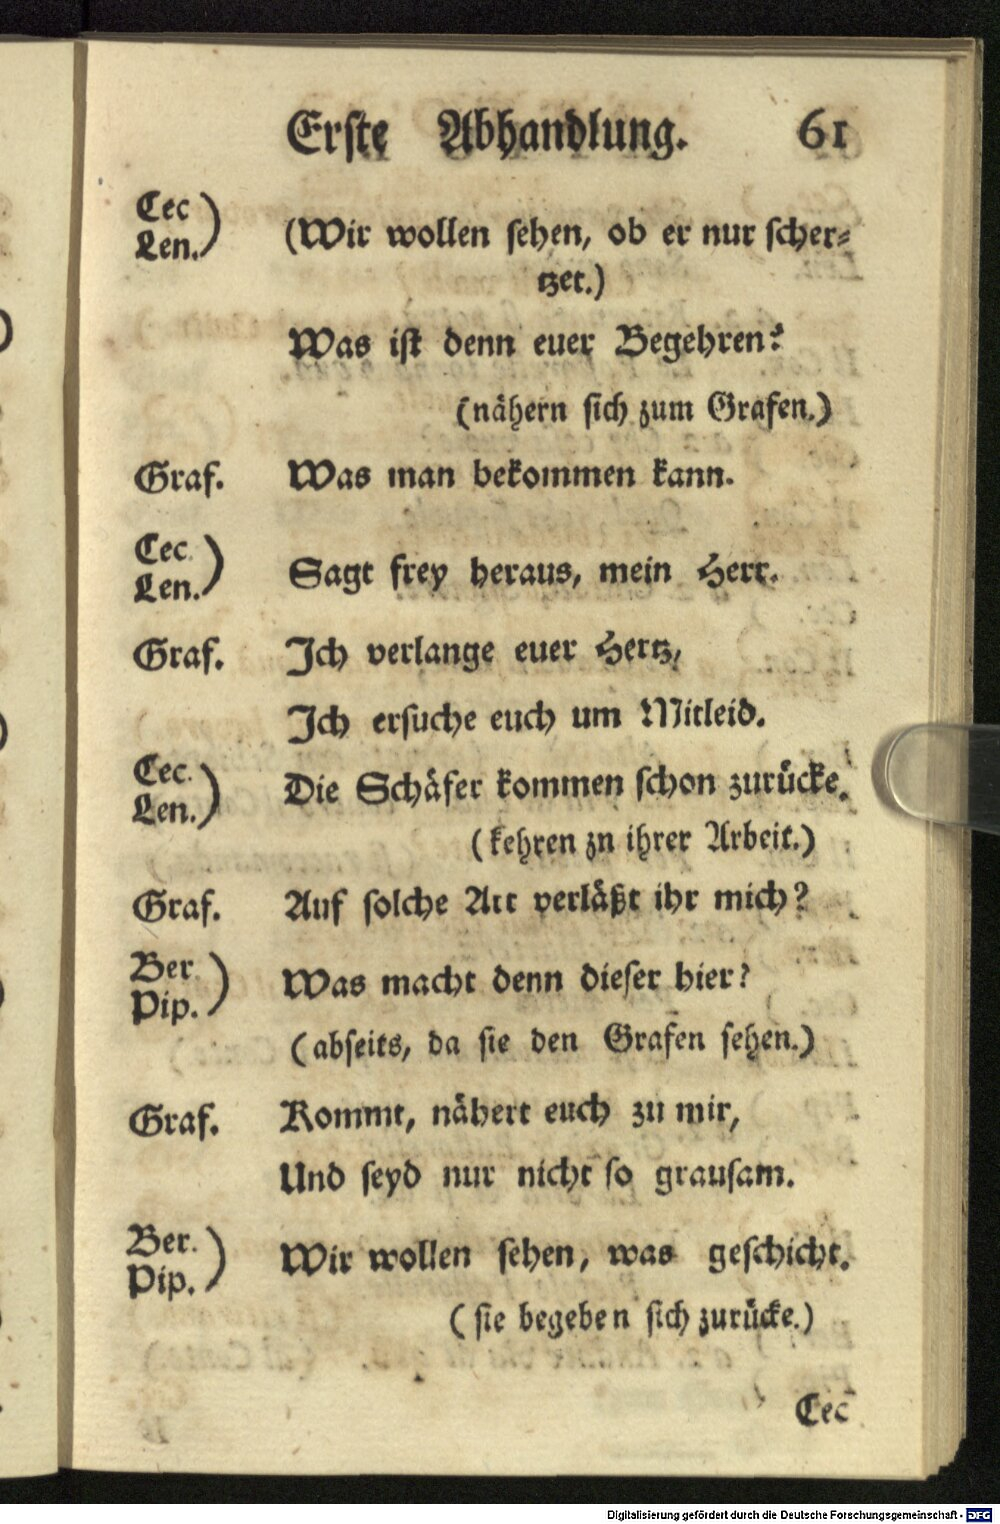 Erste Abhandlung. 61
Cec
Len.) (Wir wollen sehen, ob er nur scher-
tzet.)
Was ist denn euer Begehren?
(nähern sich zum Grafen.)
Graf. Was man bekommen kann.
Cec.
Len.) Sagt frey heraus, mein Herr.
Graf. Ich verlange euer Hertz,
Ich ersuche euch um Mitleid.
Cec.
Len.) Die Schäfer kommen schon zurücke.
(kehren zn ihrer Arbeit.)
Graf. Auf solche Art verläßt ihr mich?
Ber.
Pip.) Was macht denn dieser hier?
(abseits, da sie den Grafen sehen.)
Graf. Kommt, nähert euch zu mir,
Und seyd nur nicht so grausam.
Ber.
Pip.) Wir wollen sehen, was geschicht.
(sie begeben sich zurücke.)
Cec
Digitalisierung gefördert durch die Deutsche Forschungsgemeinschaft - DFG